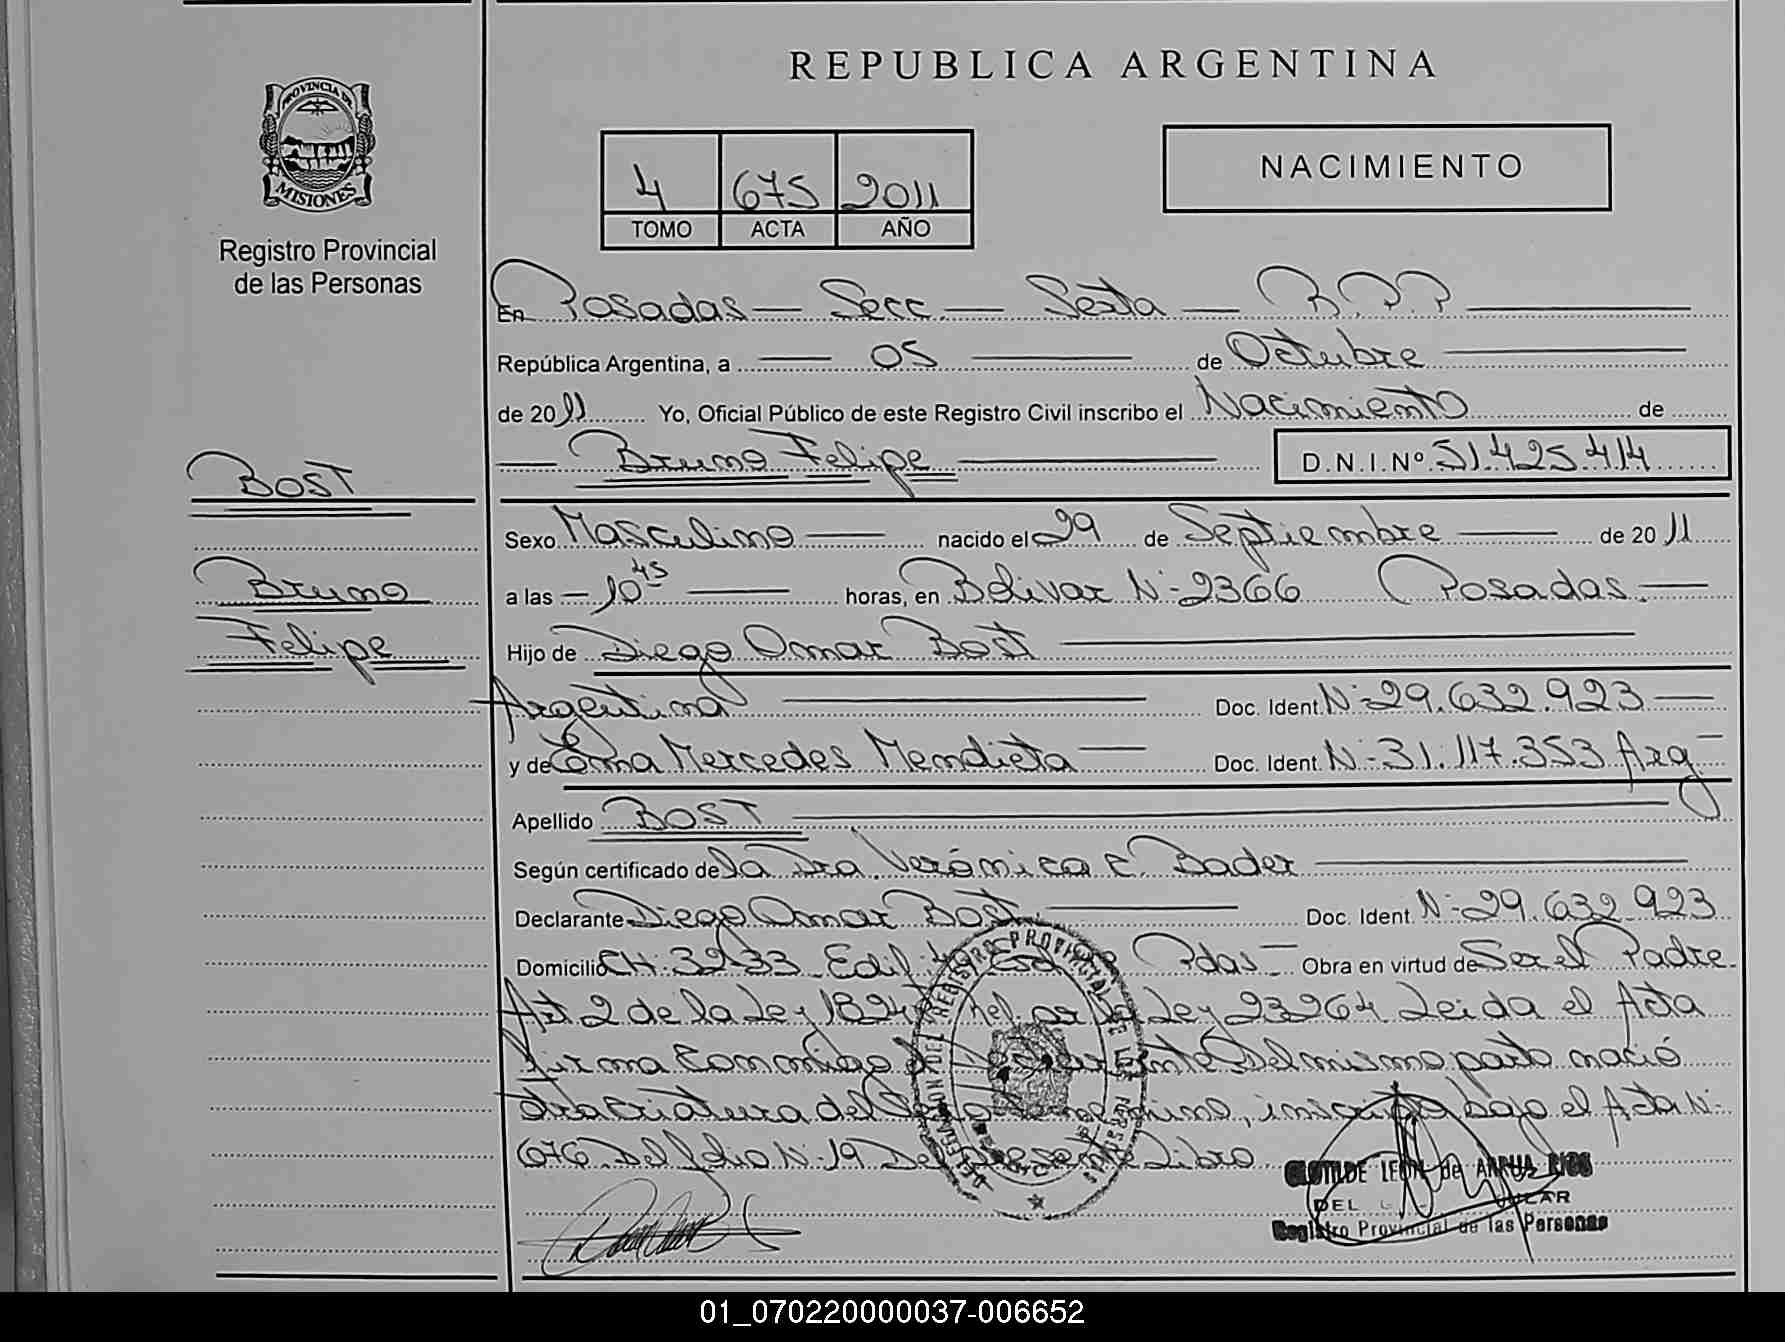 REPUBLICA ARGENTINA
PROVINCIA DE
MISIONES
Registro Provincial
de las Personas
4 675 2011
TOMO ACTA AÑO
NACIMIENTO
En Posadas — Secc — Sexta — R.P.P
República Argentina, a — 05 — de Octubre
de 2011 Yo, Oficial Público de este Registro Civil inscribo el Nacimiento de
— Bruno Felipe — D.N.I.Nº 51.425.414
BOST
Bruno
Felipe
Sexo Masculino — nacido el 29 de Septiembre — de 2011
a las — 10 45 — horas, en Bolivar N-2366 Posadas.—
Hijo de Diego Omar Bost —
Argentina — Doc. Ident. N-29.632.923 —
y de Ema Mercedes Mendieta — Doc. Ident. N-31.117.353 Arg —
Apellido BOST —
Según certificado de la Dra. Verónica E. Bader —
Declarante Diego Omar Bost — Doc. Ident. N-29.632.923
Domicilio CH. 32-33 Edif. 4 Pdas — Obra en virtud de Ser el Padre.
Art 2 de la Ley Ley 23264. Leida el Acta
Firma Conmigo el Del mismo parto nació
otra criatura del bajo el Acta N-
676 Del folio N-19 Del Presente Libro
DELEGACION DEL REGISTRO PROVINCIAL DE LAS PERSONAS
CLOTILDE LEON de ARRUA RIOS
Registro Provincial de las Personas
01_070220000037-006652